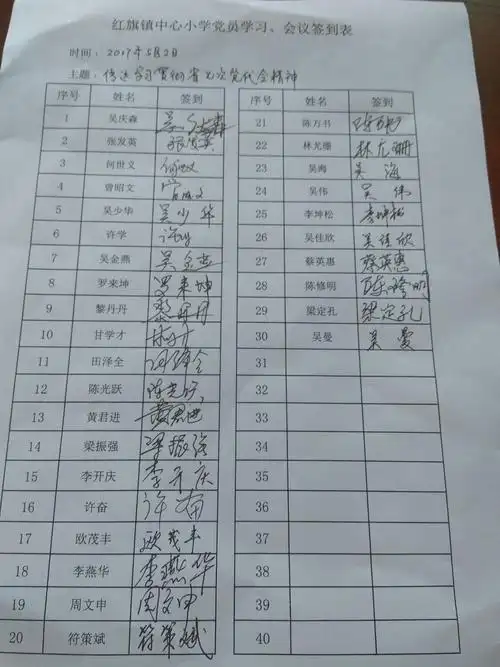 红旗镇中心小学党员学习、会议签到表
时间：2017年5月2日
主题：传达学习贯彻省七次党代会精神
序号 姓名 签到
1 吴庆森 吴庆森
2 张发英 张发英
3 何世文 何世文
4 曾昭文
5 吴少华 吴少华
6 许学 许学
7 吴金燕 吴金燕
8 罗来坤 罗来坤
9 黎丹丹 黎丹丹
10 甘学才
11 田泽全 田泽全
12 陈光跃 陈光跃
13 黄君进 黄君进
14 梁振强 梁振强
15 李开庆 李开庆
16 许奋 许奋
17 欧茂丰 欧茂丰
18 李燕华 李燕华
19 周文申 周文申
20 符策斌 符策斌
序号 姓名 签到
21 陈万书
22 林尤珊 林尤珊
23 吴海 吴海
24 吴伟 吴伟
25 李坤松 李坤松
26 吴佳欣 吴佳欣
27 蔡英惠 蔡英惠
28 陈修明 陈修明
29 梁定孔 梁定孔
30 吴曼 吴曼
31
32
33
34
35
36
37
38
39
40